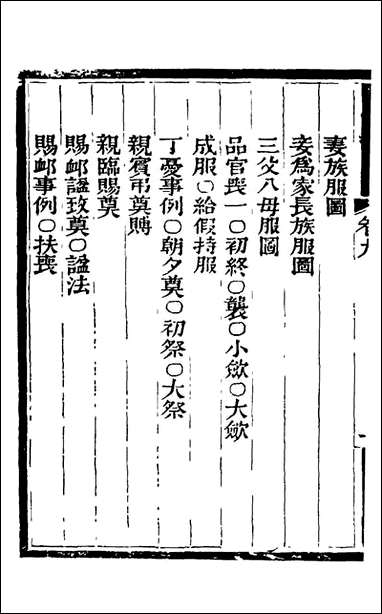 妻族服圖
妾爲家長族服圖
三父八母服圖
品官喪一〇初終〇襲〇小斂〇大斂
成服〇給假持服
丁憂事例〇朝夕奠〇初祭〇大祭
親賓弔奠賻
親臨賜奠
賜䘏諡致奠〇諡法
賜䘏事例〇扶喪
卷九